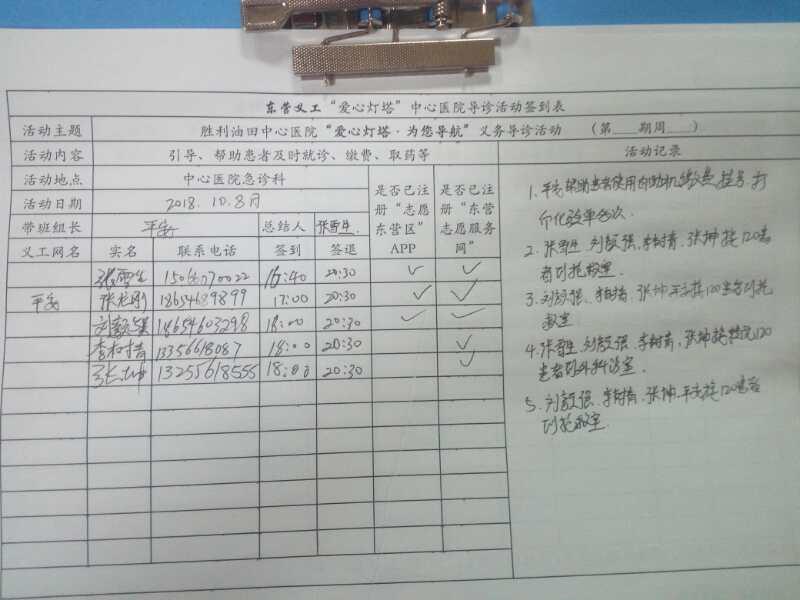 东营义工“爱心灯塔”中心医院导诊活动签到表
活动主题 胜利油田中心医院“爱心灯塔·为您导航”义务导诊活动 （第____期周____）
活动内容 引导、帮助患者及时就诊、缴费、取药等 活动记录
活动地点 中心医院急诊科 是否已注册“志愿东营区”APP 是否已注册“东营志愿服务网”
活动日期 2018.10.8日
带班组长 平安 总结人 张雪生
义工网名 实名 联系电话 签到 签退
张雪生 16:40 20:30 ✓ ✓
平安 18654689899 17:00 20:30 ✓ ✓
刘毅强 18654603298 18:00 20:30 ✓ ✓
李树精 13356618087 18:00 20:30 ✓
张坤 13255618555 18:00 20:30 ✓
1. 平安帮助患者使用自助机缴费、挂号、打
印化验单多次.
2. 张雪生、刘毅强、李树精、张坤接120患
者到抢救室.
3. 刘毅强、李树精、张坤、平安接120患者到抢
救室
4. 张雪生、刘毅强、李树精、张坤接120
患者到外科诊室.
5. 刘毅强、李树精、张坤、平安接120患者
到抢救室.